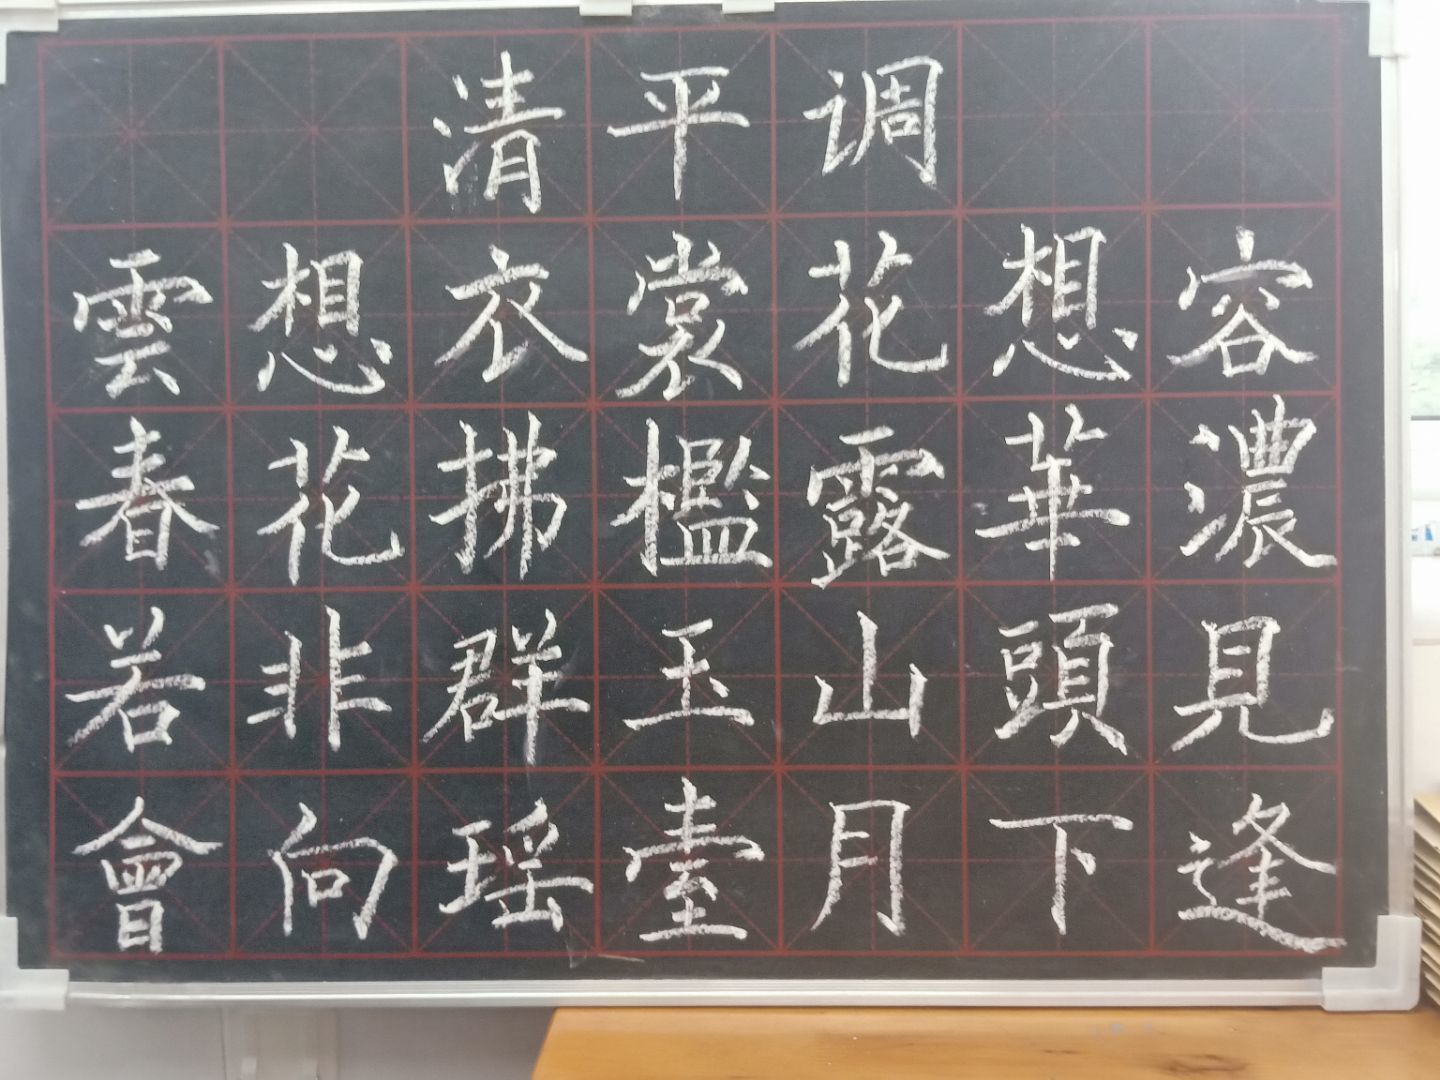 清平调
雲想衣裳花想容
春花拂檻露華濃
若非群玉山頭見
會向瑶臺月下逢